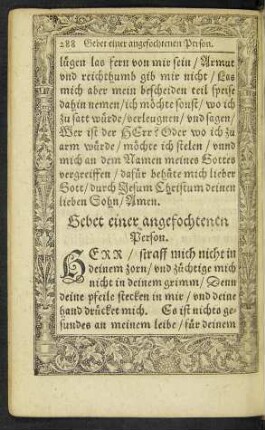 288 Gebet einer angefochtenen Person.
lügen las fern von mir sein / Armut
vnd reichthumb gib mir nicht / Las
mich aber mein bescheiden teil speise
dahin nemen / ich möchte sonst / wo ich
zu satt würde / verleugnen / vnd sagen /
Wer ist der HErr? Oder wo ich zu
arm würde / möchte ich stelen / vnnd
mich an dem Namen meines Gottes
vergreiffen / dafür behüte mich lieber
Gott / durch Jesum Christum deinen
lieben Sohn / Amen.
Gebet einer angefochtenen
Person.
HERR / straff mich nicht in
deinem zorn / vnd züchtige mich
nicht in deinem grimm / Denn
deine pfeile stecken in mir / vnd deine
hand drücket mich. Es ist nichts ge-
sundes an meinem leibe / für deinem